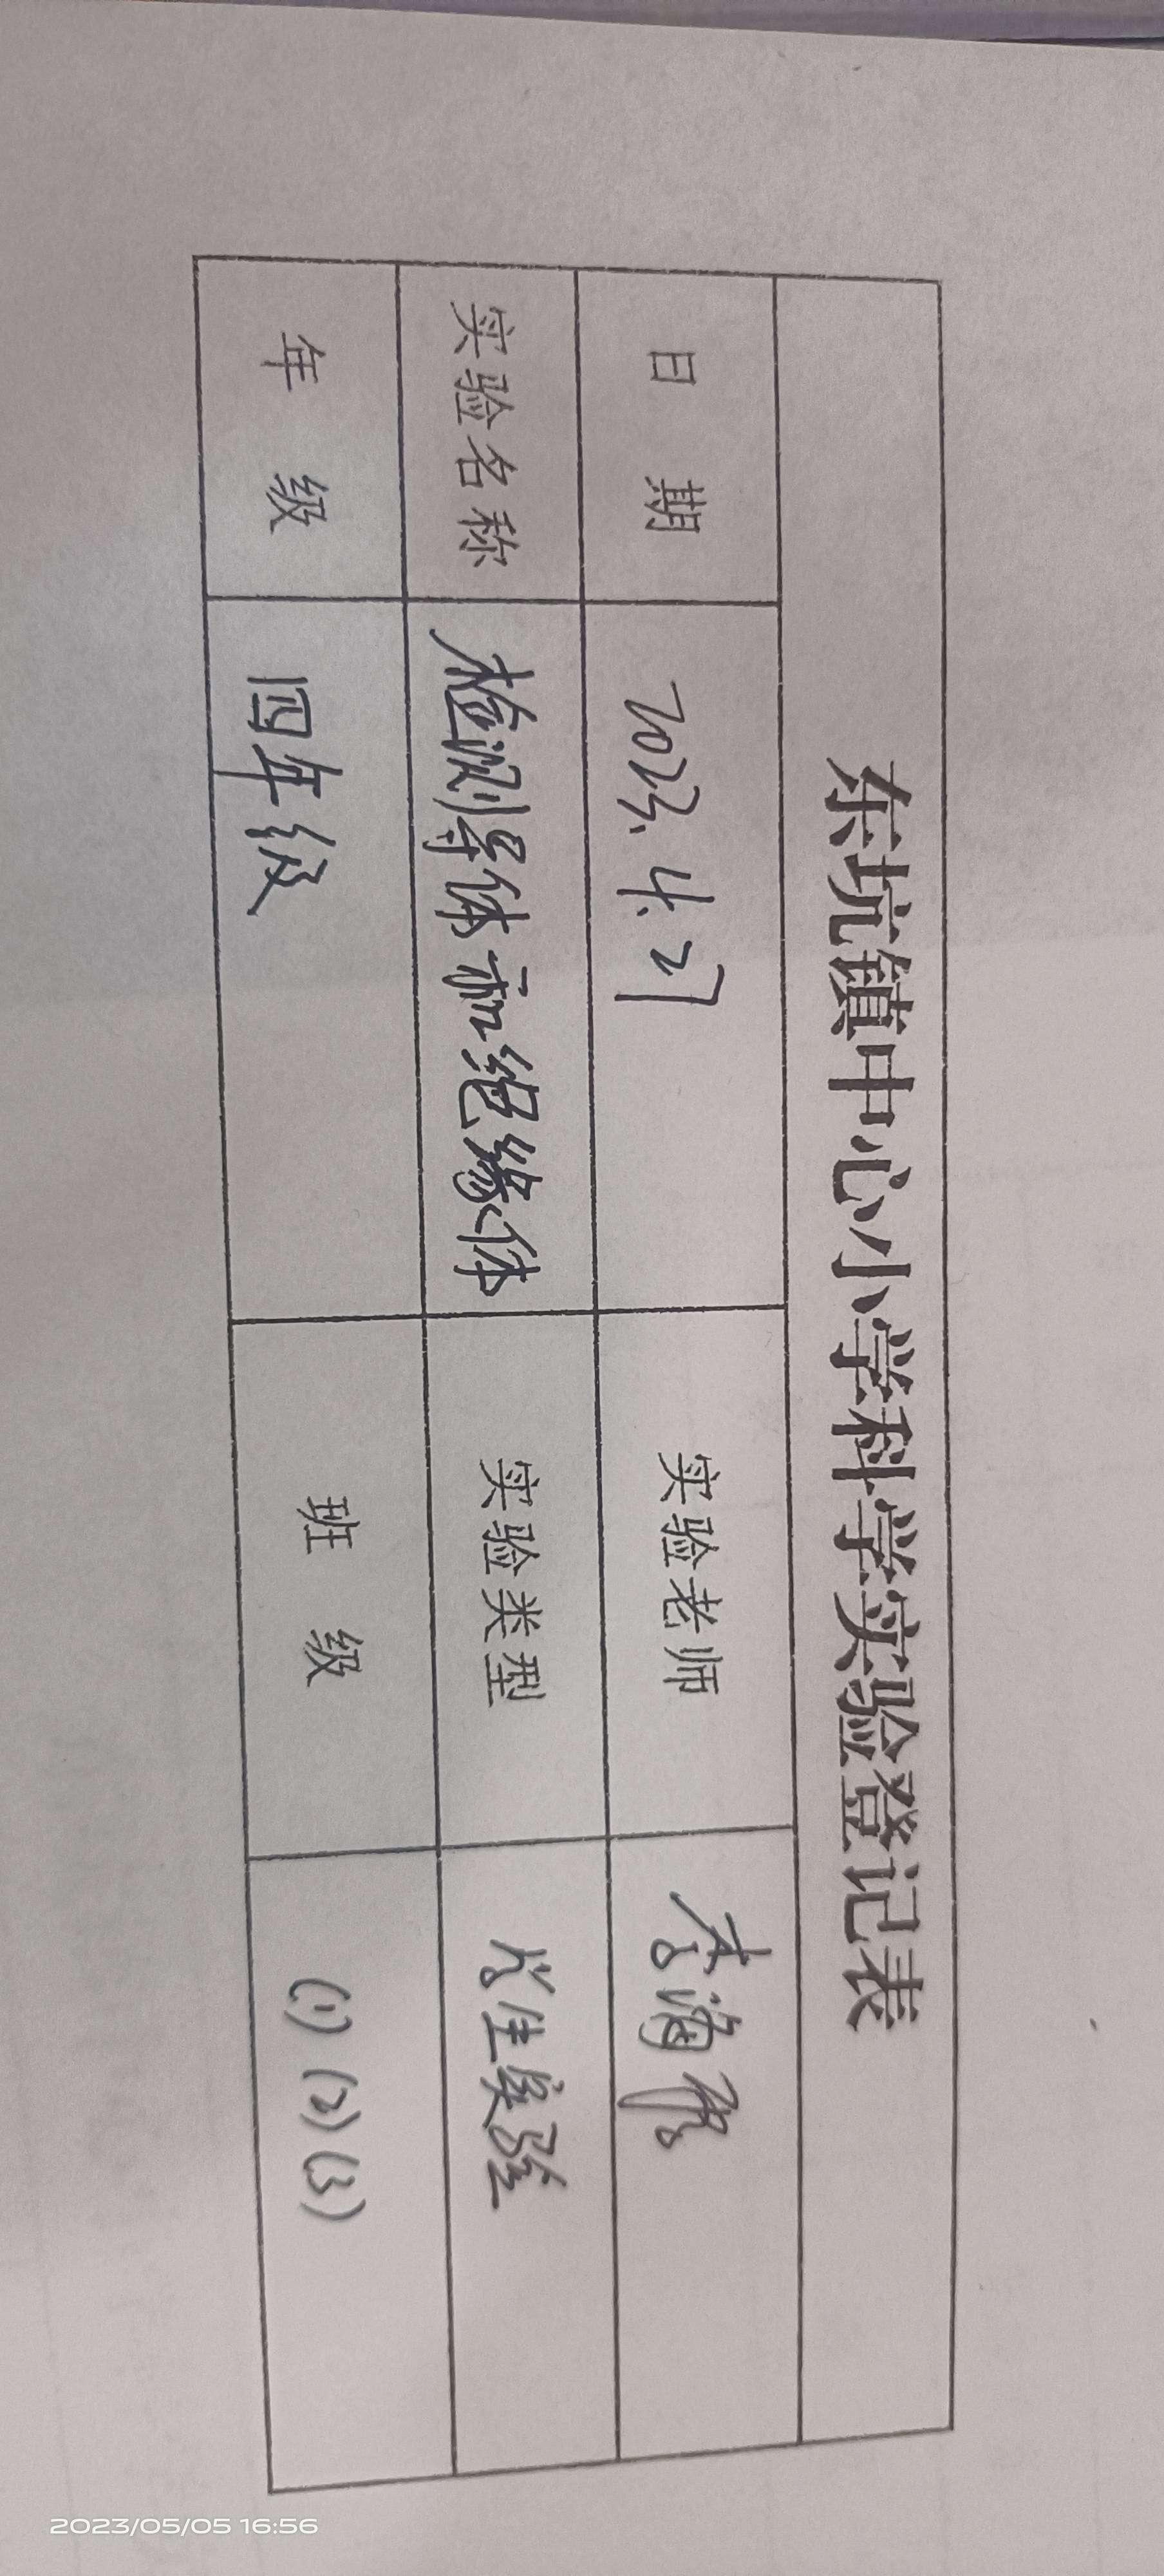 东坑镇中心小学科学实验登记表
日 期 2023.4.27 实验老师 李海
实验名称 检测导体和绝缘体 实验类型 学生实验
年 级 四年级 班 级 (1)(2)(3)
2023/05/05 16:56